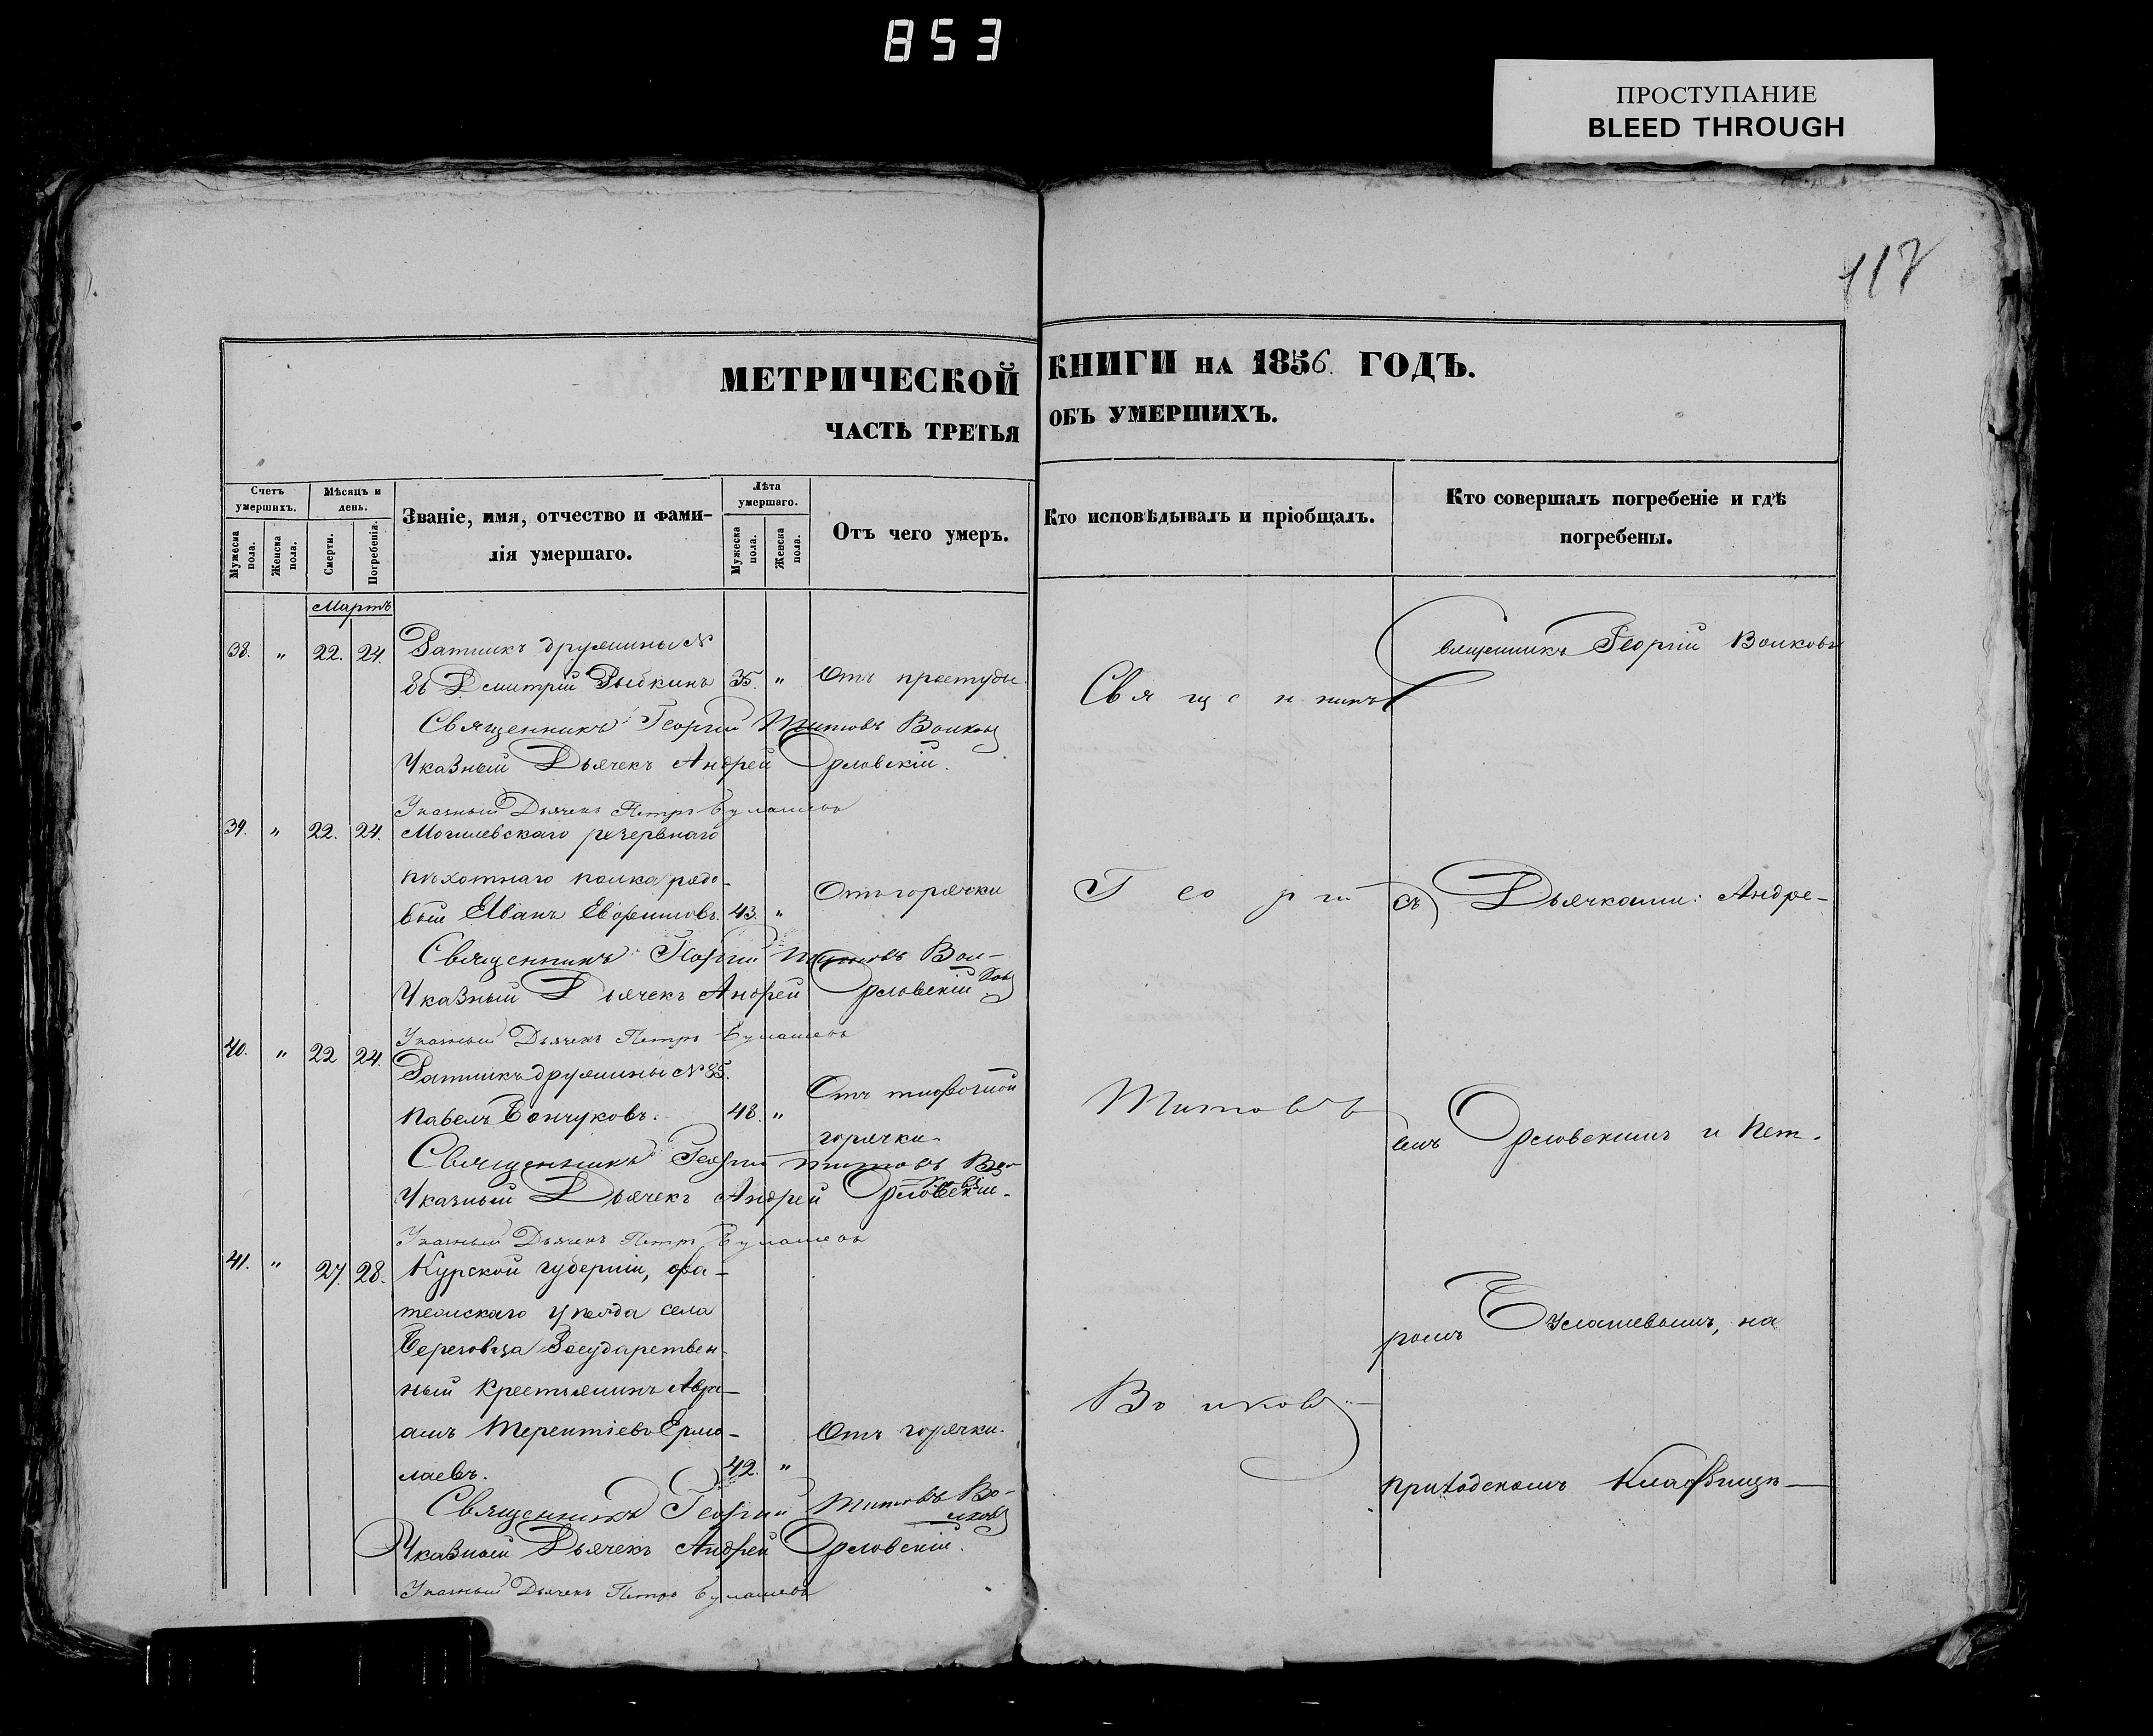 853
ПРОСТУПАНИЕ
BLEED THROUGH
117
МЕТРИЧЕСКОЙ КНИГИ НА 1856. ГОДЪ.
ЧАСТЬ ТРЕТЬЯ ОБЪ УМЕРШИХЪ.
Счетъ умершихъ.
Мужеска пола.
Женска пола.
Мѣсяцъ и день.
Смерти.
Погребенія.
Званіе, имя, отчество и фами-
лія умершаго.
Лѣта умершаго.
Мужеска пола.
Женска пола.
Отъ чего умеръ.
Кто исповѣдывалъ и пріобщалъ.
Кто совершалъ погребеніе и гдѣ
погребены.
Мартъ
38. " 22. 24. Ратникъ дружины №
Дмитрій Рыбкинъ 35. " Отъ простуды.
Священникъ Георгій Титовъ Волковъ
Указный Дьячекъ Андрей Орловскій.
Указный Дьячекъ Петръ Булашевъ
39. " 22. 24. Могилевскаго резервнаго
пѣхотнаго полка рядо-
вый Иванъ Евфимовъ. 43. " Отъ горячки
Священникъ Георгій Титовъ Вол-
ковъ
Указный Дьячекъ Андрей Орловскій
Указный Дьячекъ Петръ Булашевъ
40. " 22 24. Ратникъ дружины № 85.
Павелъ Бончуковъ. 48. " Отъ тифозной
горячки.
Священникъ Георгій Титовъ Вол-
ковъ
Указный Дьячекъ Андрей Орловскій.
Указный Дьячекъ Петръ Булашевъ
41. " 27. 28. Курской губерніи, фа-
тежскаго уѣзда села
Березовца Государствен-
ный крестьянинъ Авра-
амъ Терентіевъ Ермо- Отъ горячки.
лаевъ. 42. "
Священникъ Георгій Титовъ Во-
лковъ
Указный Дьячекъ Андрей Орловскій.
Указный Дьячекъ Петръ Булашевъ
Священникъ
Георгій
Титовъ
Волковъ
Священникъ Георгій Волковъ
съ Дьячками: Андре-
емъ Орловскимъ и Пет-
ромъ Булашевымъ, на
приходскомъ кладбищѣ